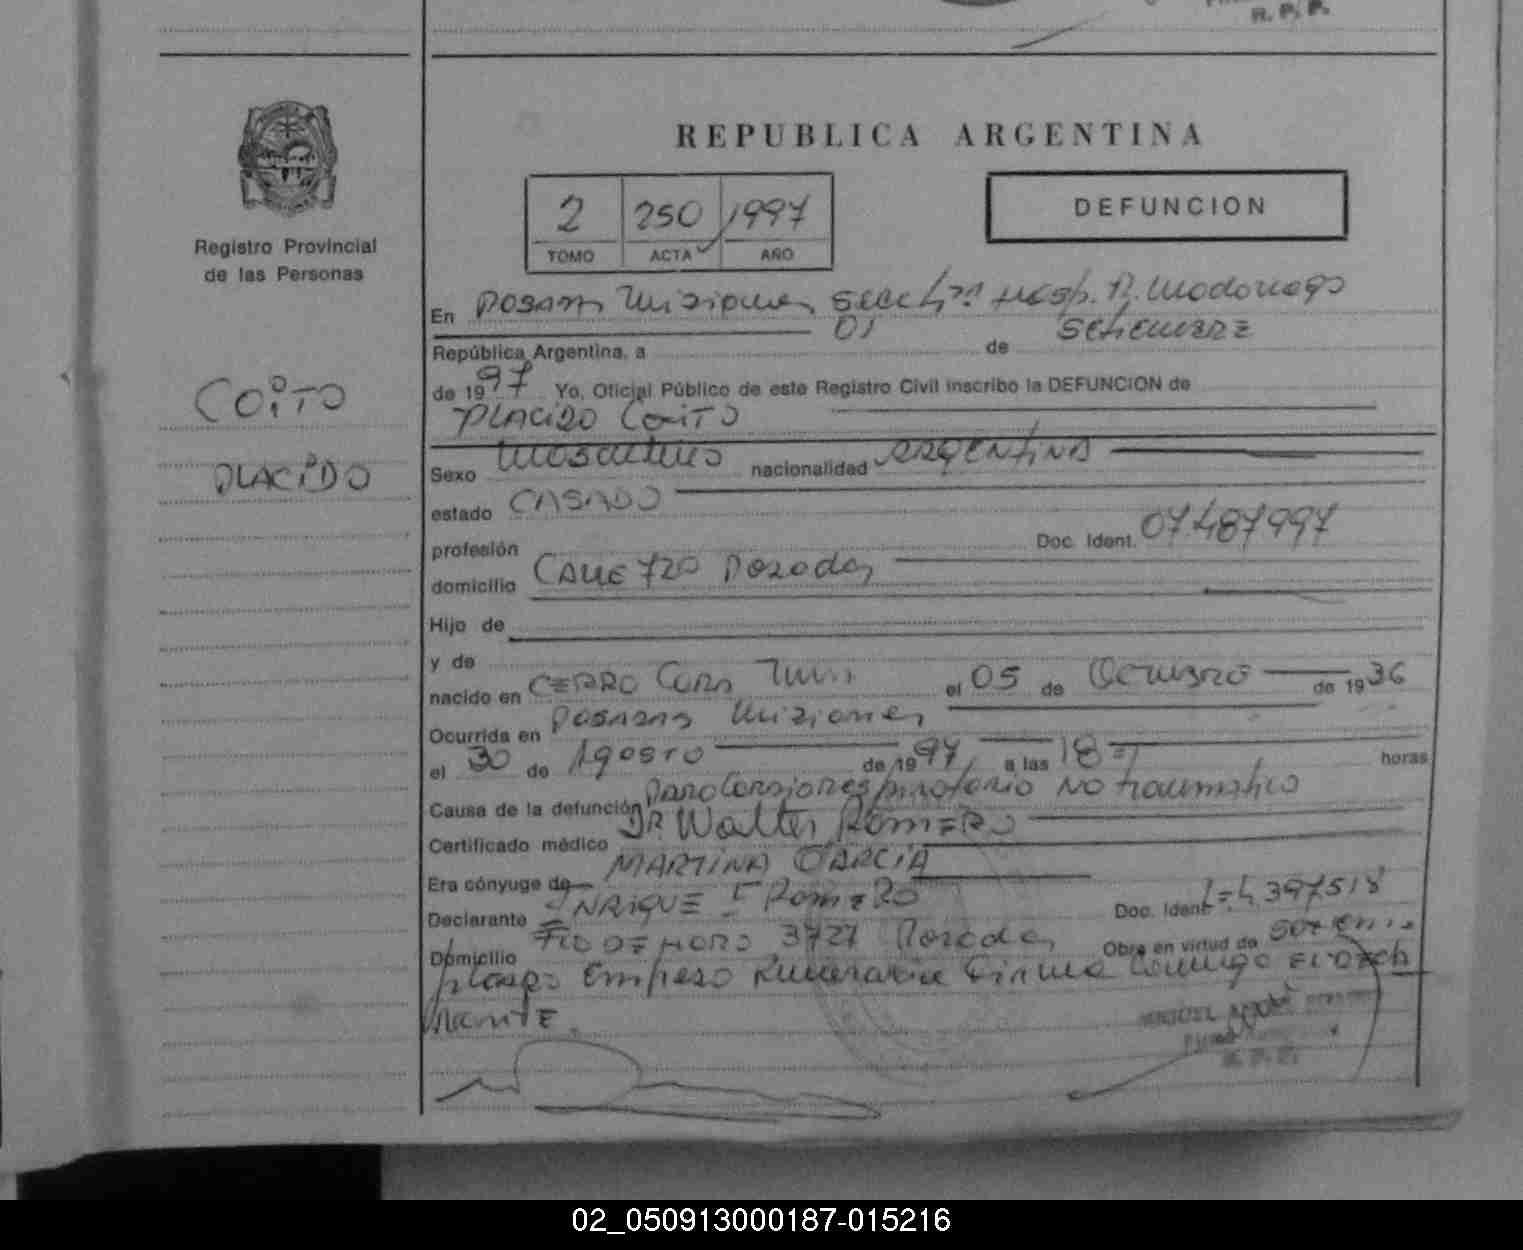 R. P. P.
REPUBLICA ARGENTINA
2 250 1997
TOMO ACTA AÑO
DEFUNCION
Registro Provincial
de las Personas
COITO
PLACIDO
En Posadas Misiones Secc 7ma Hosp. R. Madariaga
República Argentina, a 01 de Setiembre
de 1997 Yo, Oficial Público de este Registro Civil inscribo la DEFUNCION de
PLACIDO COITO
Sexo Masculino nacionalidad ARGENTINA
estado CASADO
profesión Doc. Ident. 07.487997
domicilio CALLE 720 Posadas
Hijo de
y de
nacido en CERRO Cora el 05 de Octubre de 1936
Ocurrida en Posadas Misiones
el 30 de Agosto de 1997 a las 18 horas
Causa de la defunción Paro Cardiorespiratorio NO traumatico
Certificado médico DR Walter ROMERO
Era cónyuge de MARTINA GARCIA
Declarante ENRIQUE F ROMERO Doc. Ident. 4.397518
Domicilio 3727 Posadas Obra en virtud de
Empresa Funeraria Firma Conmigo El Decla
rante.
MIGUEL
R. P. P.
02_050913000187-015216